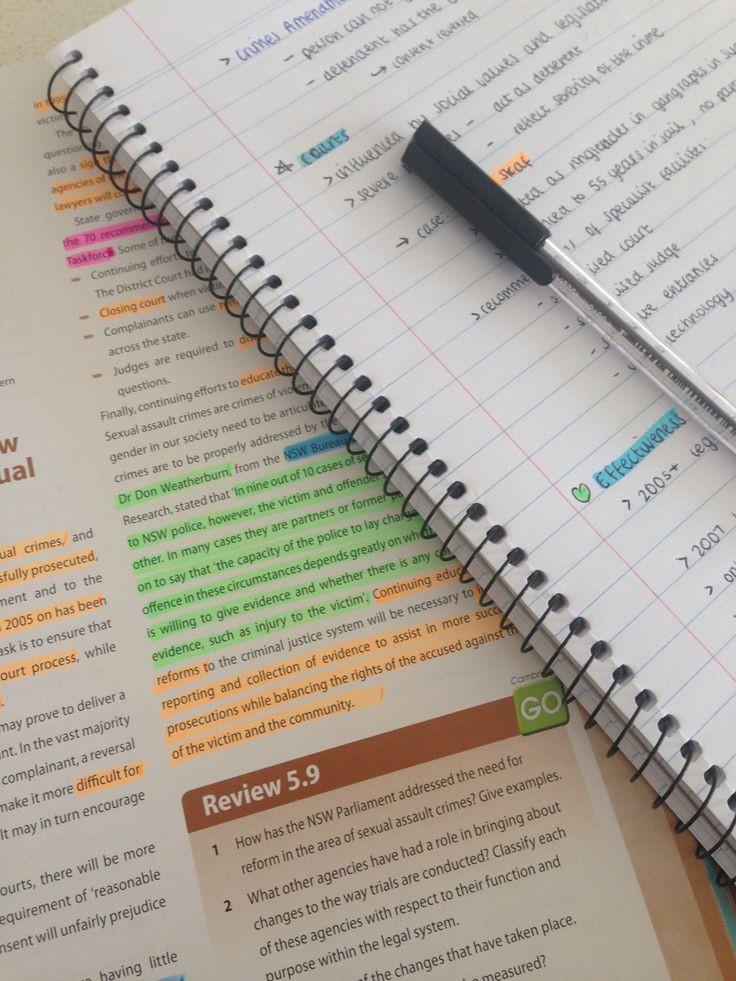 ern
w
ual
ual crimes, and
sfully prosecuted,
ment and to the
2005 on has been
ask is to ensure that
ourt process, while
may prove to deliver a
nt. In the vast majority
complainant, a reversal
make it more difficult for
It may in turn encourage
ourts, there will be more
equirement of 'reasonable
nsent will unfairly prejudice
having little
In 1995
victim
The
question
also a sign
agencies of
lawyers will co
State gover
the 70 recomme
Taskforce. Some of
Continuing effort
The District Court had
Closing court when victi
Complainants can use
across the state.
Judges are required to dis
questions.
Finally, continuing efforts to educate the
Sexual assault crimes are crimes of violen
gender in our society need to be articulate
crimes are to be properly addressed by the
Dr Don Weatherburn, from the NSW Bureau
Research, stated that 'In nine out of 10 cases of se
to NSW police, however, the victim and offender
other. In many cases they are partners or former p
on to say that 'the capacity of the police to lay charg
offence in these circumstances depends greatly on wh
is willing to give evidence and whether there is any o
evidence, such as injury to the victim'. Continuing educ
reforms to the criminal justice system will be necessary to
reporting and collection of evidence to assist in more succe
prosecutions while balancing the rights of the accused against th
of the victim and the community.
Cambr
GO
Review 5.9
1 How has the NSW Parliament addressed the need for
reform in the area of sexual assault crimes? Give examples.
2 What other agencies have had a role in bringing about
changes to the way trials are conducted? Classify each
of these agencies with respect to their function and
purpose within the legal system.
of the changes that have taken place.
be measured?
> Crimes Amendme
- person can not
- defendent has the
↳ consent revered
☆ Courts
> influenced by social values and legislatio
> severe - act as deterrent
- reflect severity of the crime
→ case: Skaf
ted as ringleader in gangrapes in
nced to 55 years in jail, no paro
> recomme s of specialist facilities:
- ised court
- ised judge
- ve entrances
- technology
♥ Effectiveness
> 200s+ leg
> 2007
> op